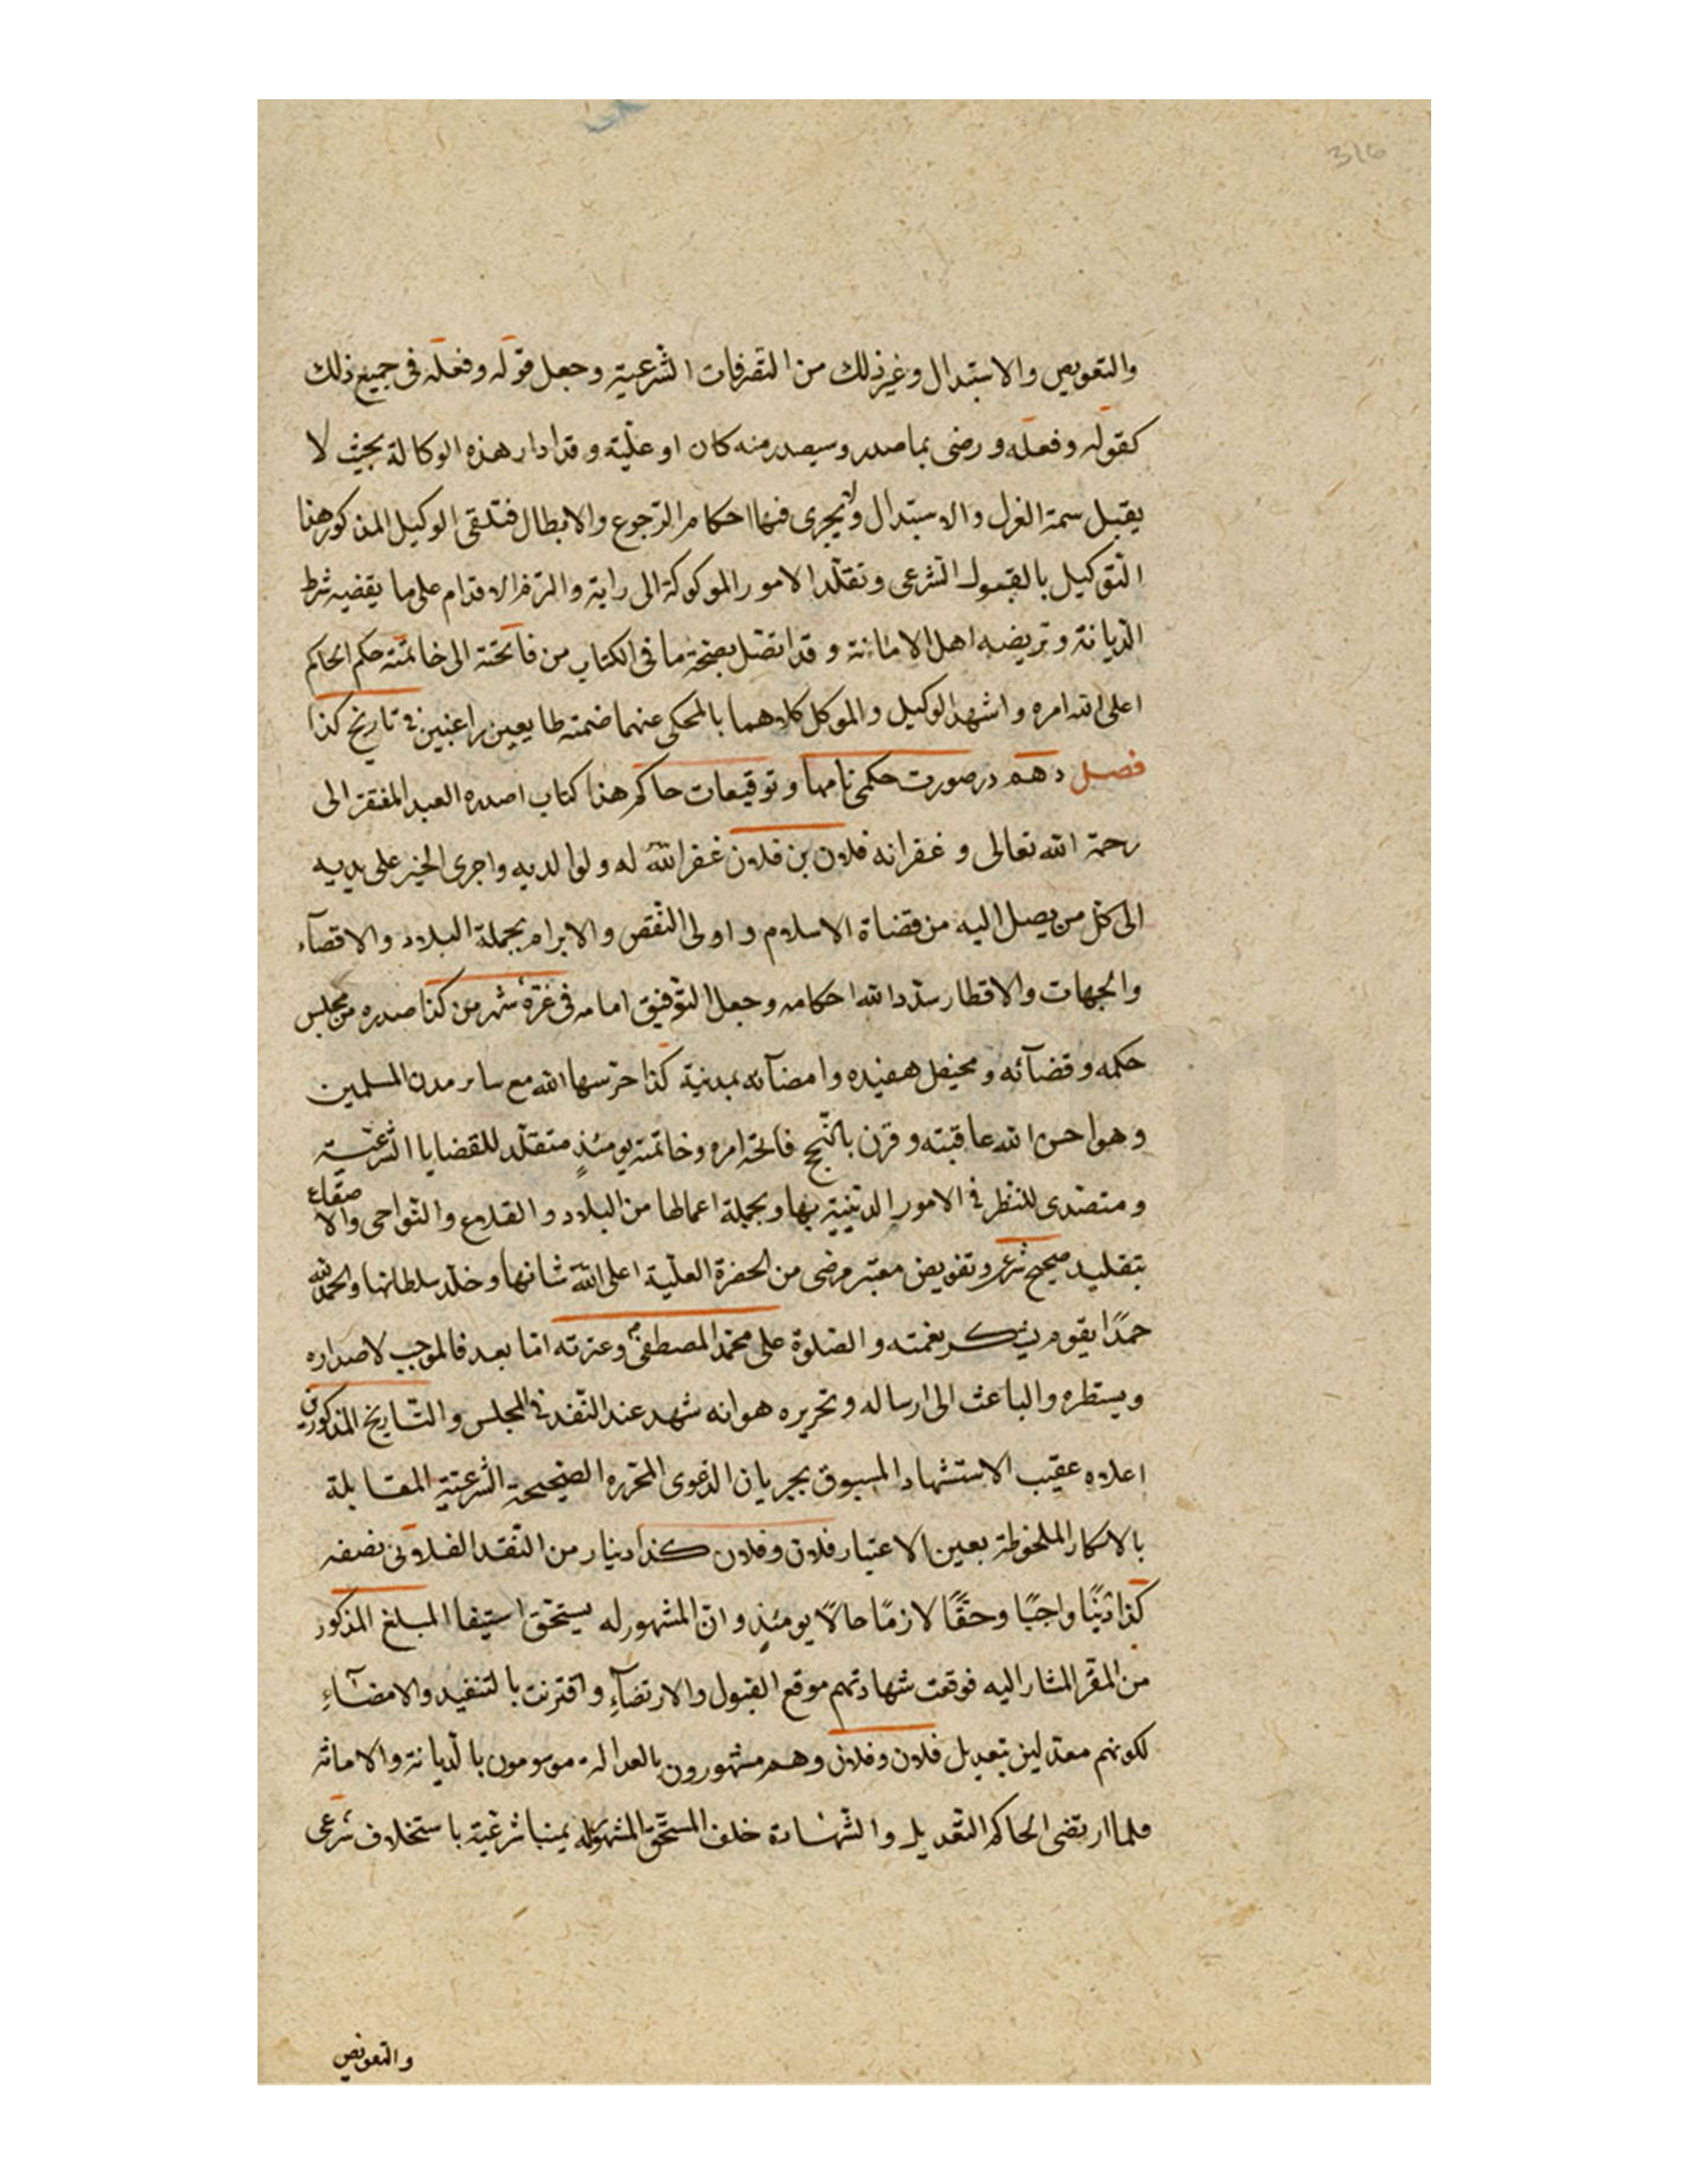 316
والتعويض والاستبدال وغير ذلك من التصرفات الشرعية وجعل قوله وفعله فى جميع ذلك
كقوله وفعله ورضى بما صدر وسيصدر منه كان او عليه وقد ادار هذه الوكالة بحيث لا
يقبل سمة العزل والاستبدال ولا يجرى فيها احكام الرجوع والابطال فتلقى الوكيل المذكور هذا
التوكيل بالقبول الشرعى وتقلد الامور الموكولة الى راية والتزم الاقدام على ما يقضيه شرط
الديانة وتريضه اهل الامانة وقد اتصل بصحة ما فى الكتاب من فاتحته الى خاتمته حكم الحاكم
اعلى الله امره واشهد الوكيل والموكل كلاهما بالمحكى عنهما ضمنه طايعين راغبين فى تاريخ كذا
فصل دهم در صورت حكمى نامها وتوقيعات حاكم هذا كتاب اصدره العبد المفتقر الى
رحمة الله تعالى وغفرانه فلان بن فلان غفر الله له ولوالديه واجرى الخير على يديه
الى كل من يصل اليه من قضاة الاسلام واولى النقض والابرام بجملة البلاد والاقصاء
والجهات والاقطار سدد الله احكامه وجعل التوفيق امامه فى غرة شهر من كذا صدره من مجلس
حكمه وقضائه ومحفل وامضائه بمدينة كذا حرسها الله مع ساير مدن المسلمين
وهو احسن الله عاقبته وقرن بالنجح فاتحة امره وخاتمته يومئذ متقلد للقضايا الشرعية
ومتصدى للنظر فى الامور الدينية بها وبجملة اعمالها من البلاد والقلاع والنواحى والاصقاع
بتقليد صحيح شرعى وتفويض معتبر مرضى من الحضرة العلية اعلى الله شانها وخلد سلطانها والحمد لله
حمدًا يقوم بشكر نعمته والصلوة على محمد المصطفى وعترته اما بعد فالموجب لاصداره
ويستطره والباعث الى ارساله وتحريره هو انه شهد عند النفد فى المجلس والتاريخ المذكورين
اعلاه عقيب الاستشهاد المسبوق بجريان الدعوى المحررة الصحيحة الشرعية المقابلة
بالانكار الملحوظة بعين الاعتبار فلان وفلان كذا دينار من النقد الفلانى نصفه
كذا دينًا واجبًا وحقًا لازمًا حالًا يومئذ وان المشهور له يستحق استيفا المبلغ المذكور
من المقر المشار اليه فوقعت شهادتهم موقع القبول والارتضاء واقترنت بالتنفيد والامضاء
لكونهم معدلين بتعديل فلان وفلان وهم مشهورون بالعدالة موسومون بالديانة والامانة
فلما ارتضى الحاكم التعديل والشهادة خلف المستحق المشهور له يمينا شرعية باستخلاف شرعى
والتعويض